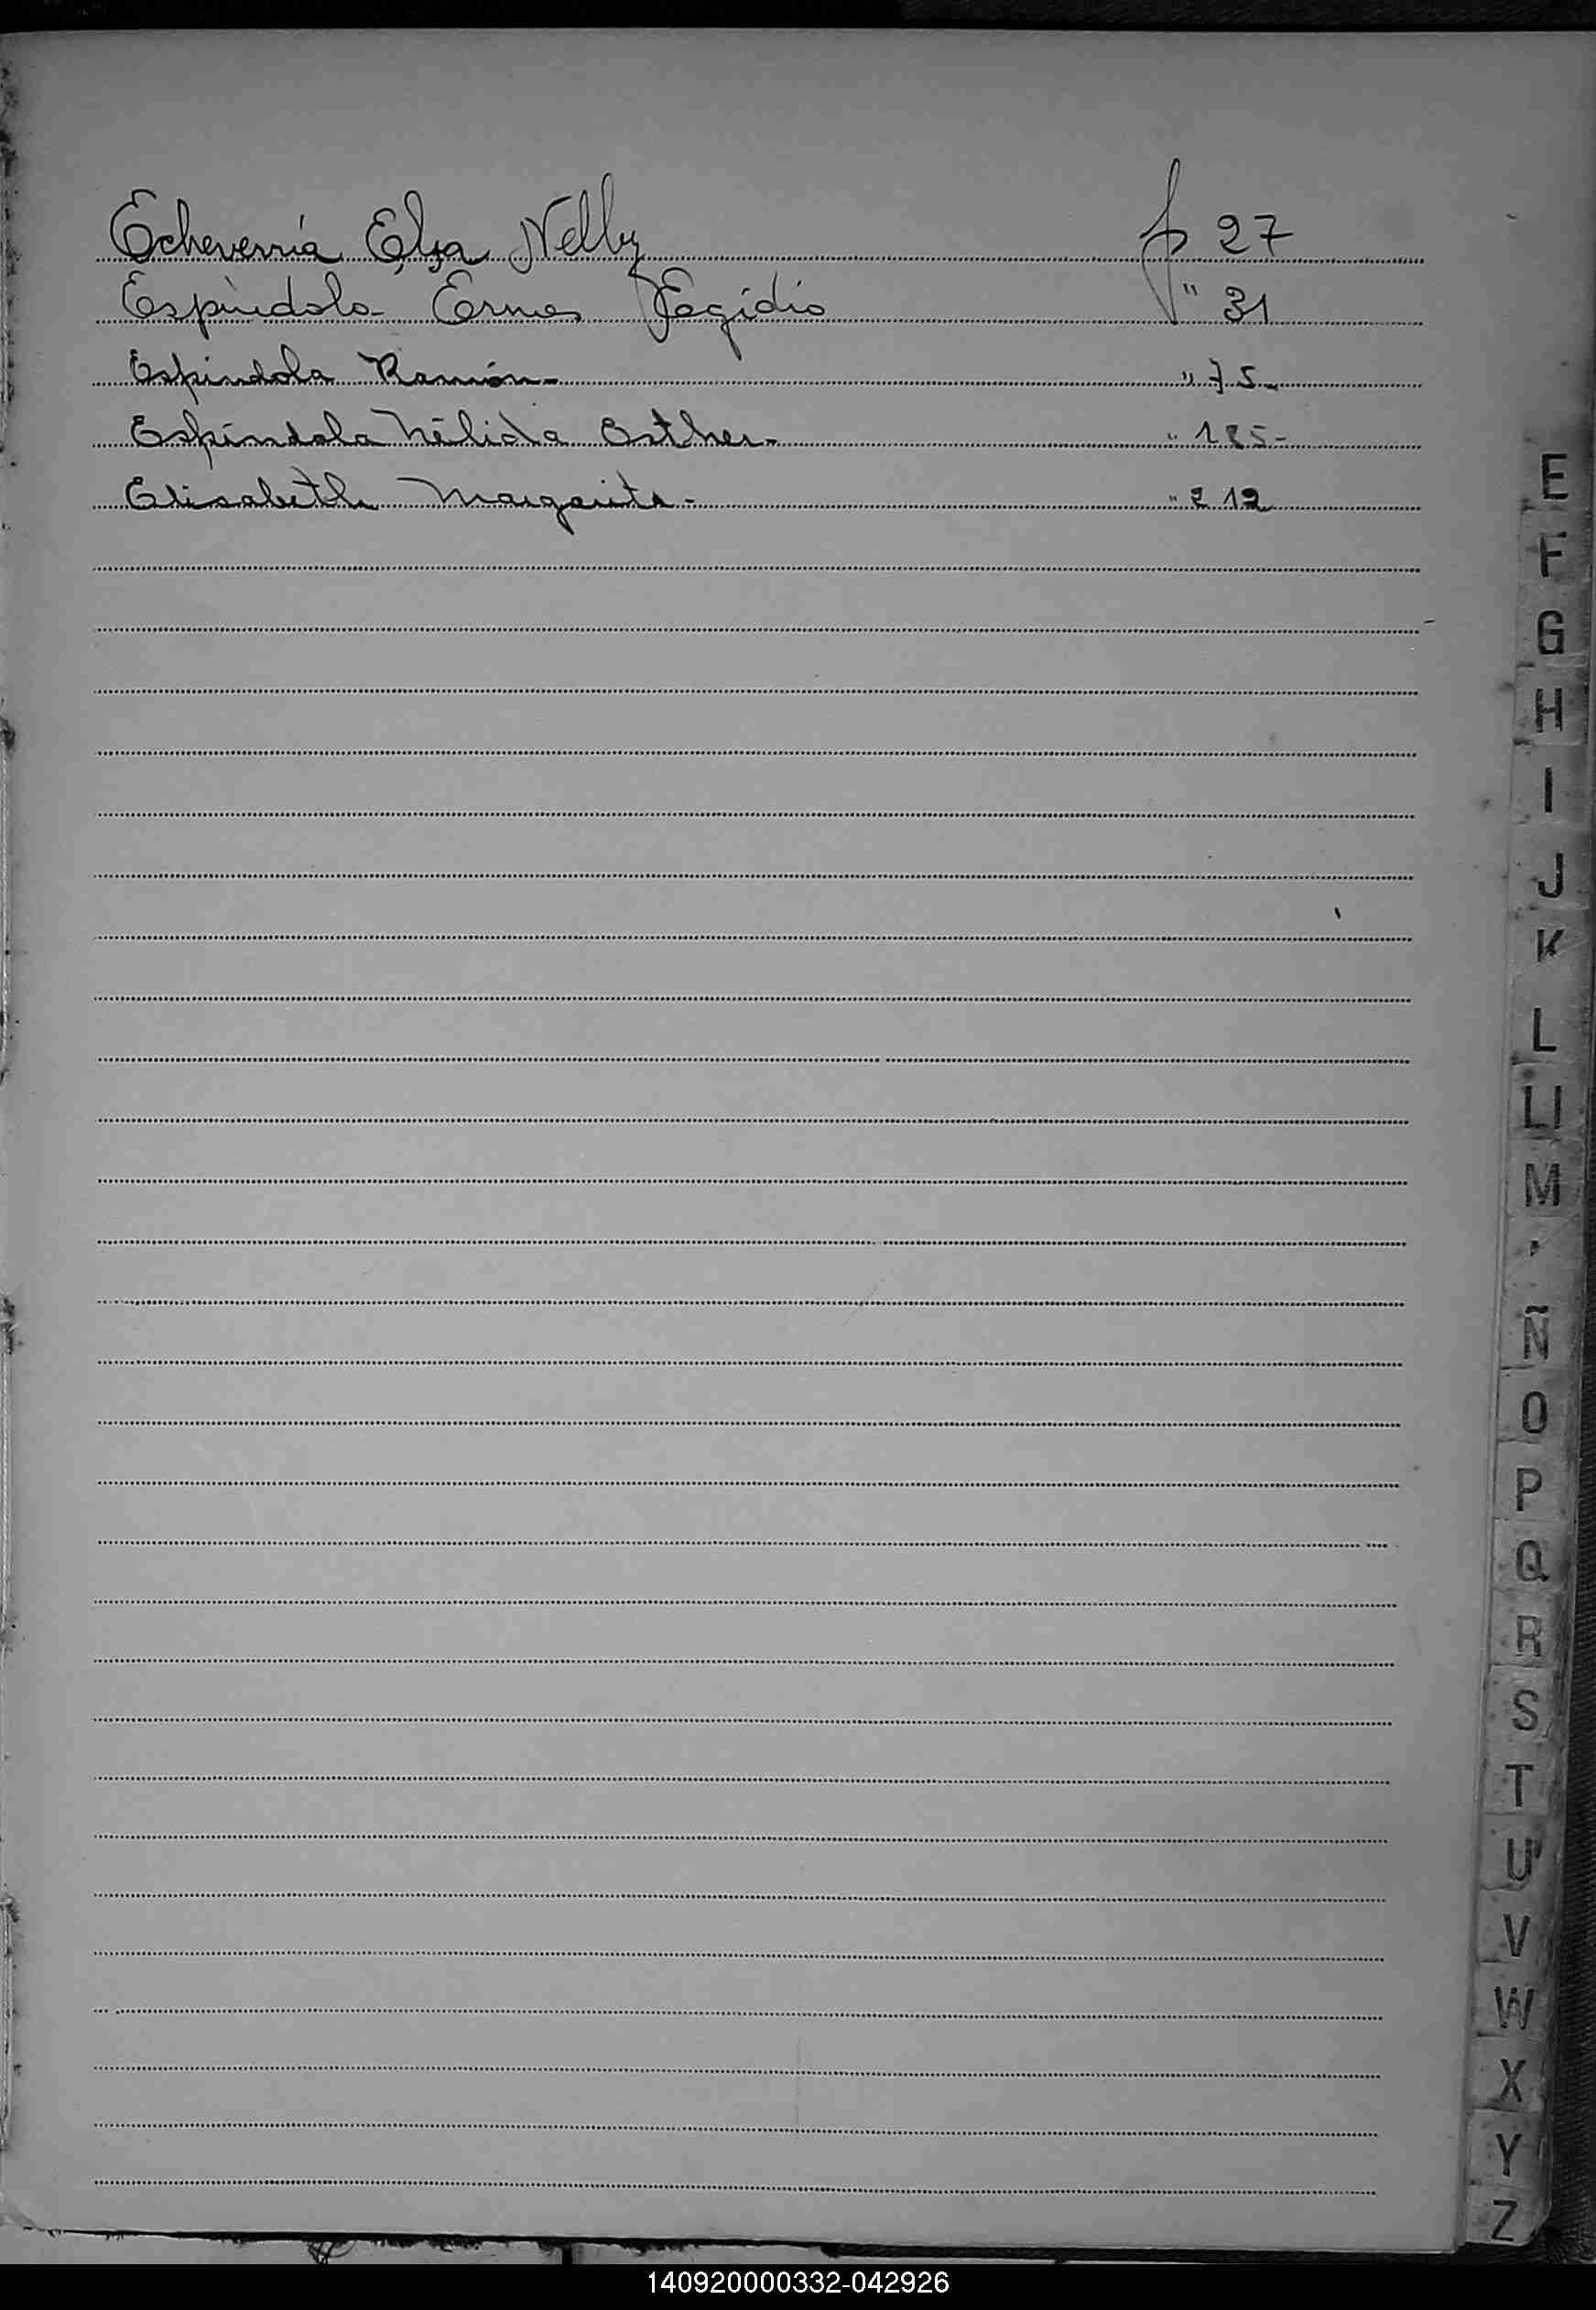 Echeverría Elsa Nelly f 27
Espíndola Ernes Egidio " 31
Espindola Ramón- " 75-
Espíndola Nélida Esther- " 185-
Elisabeth Margarita- " 212
E
F
G
H
I
J
K
L
Ll
M
Ñ
O
P
Q
R
S
T
U
V
W
X
Y
Z
140920000332-042926